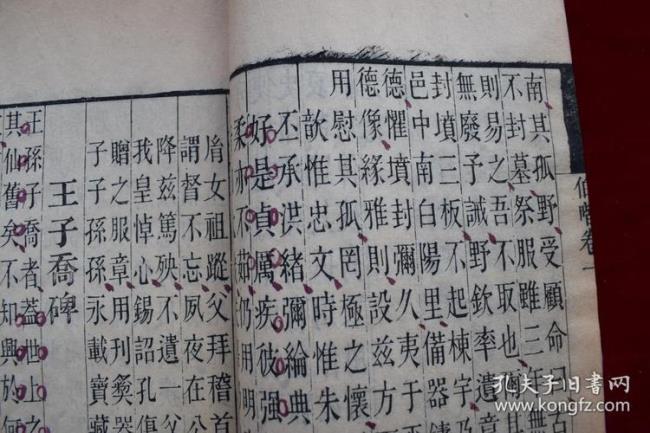 南其孤野受顧命曰古
不封墓祭服雖三年無
則易之吾不取也
無廢予誠野欽率遺
封墳三板不起棟宇乃
邑中南白陽里備器
德懼墳封彌久夷于
德像緣雅則設茲方
用慰其孤罔極之懷
歆惟忠文時惟朱
丕承洪緒彌綸典
好是貞厲疾彼强
柔亦不茹仍用明
胤女祖蹤父拜稽首
謂督不忘夙夜在公
降茲篤殃不遺一父
我皇悼心錫詔孔傷
贈之服章用刊奠器
子子孫孫永載寶藏
王子喬碑
王孫子喬者蓋世上之
其仙舊矣不知興於何
卷一
孔夫子旧书网
www.kongfz.com